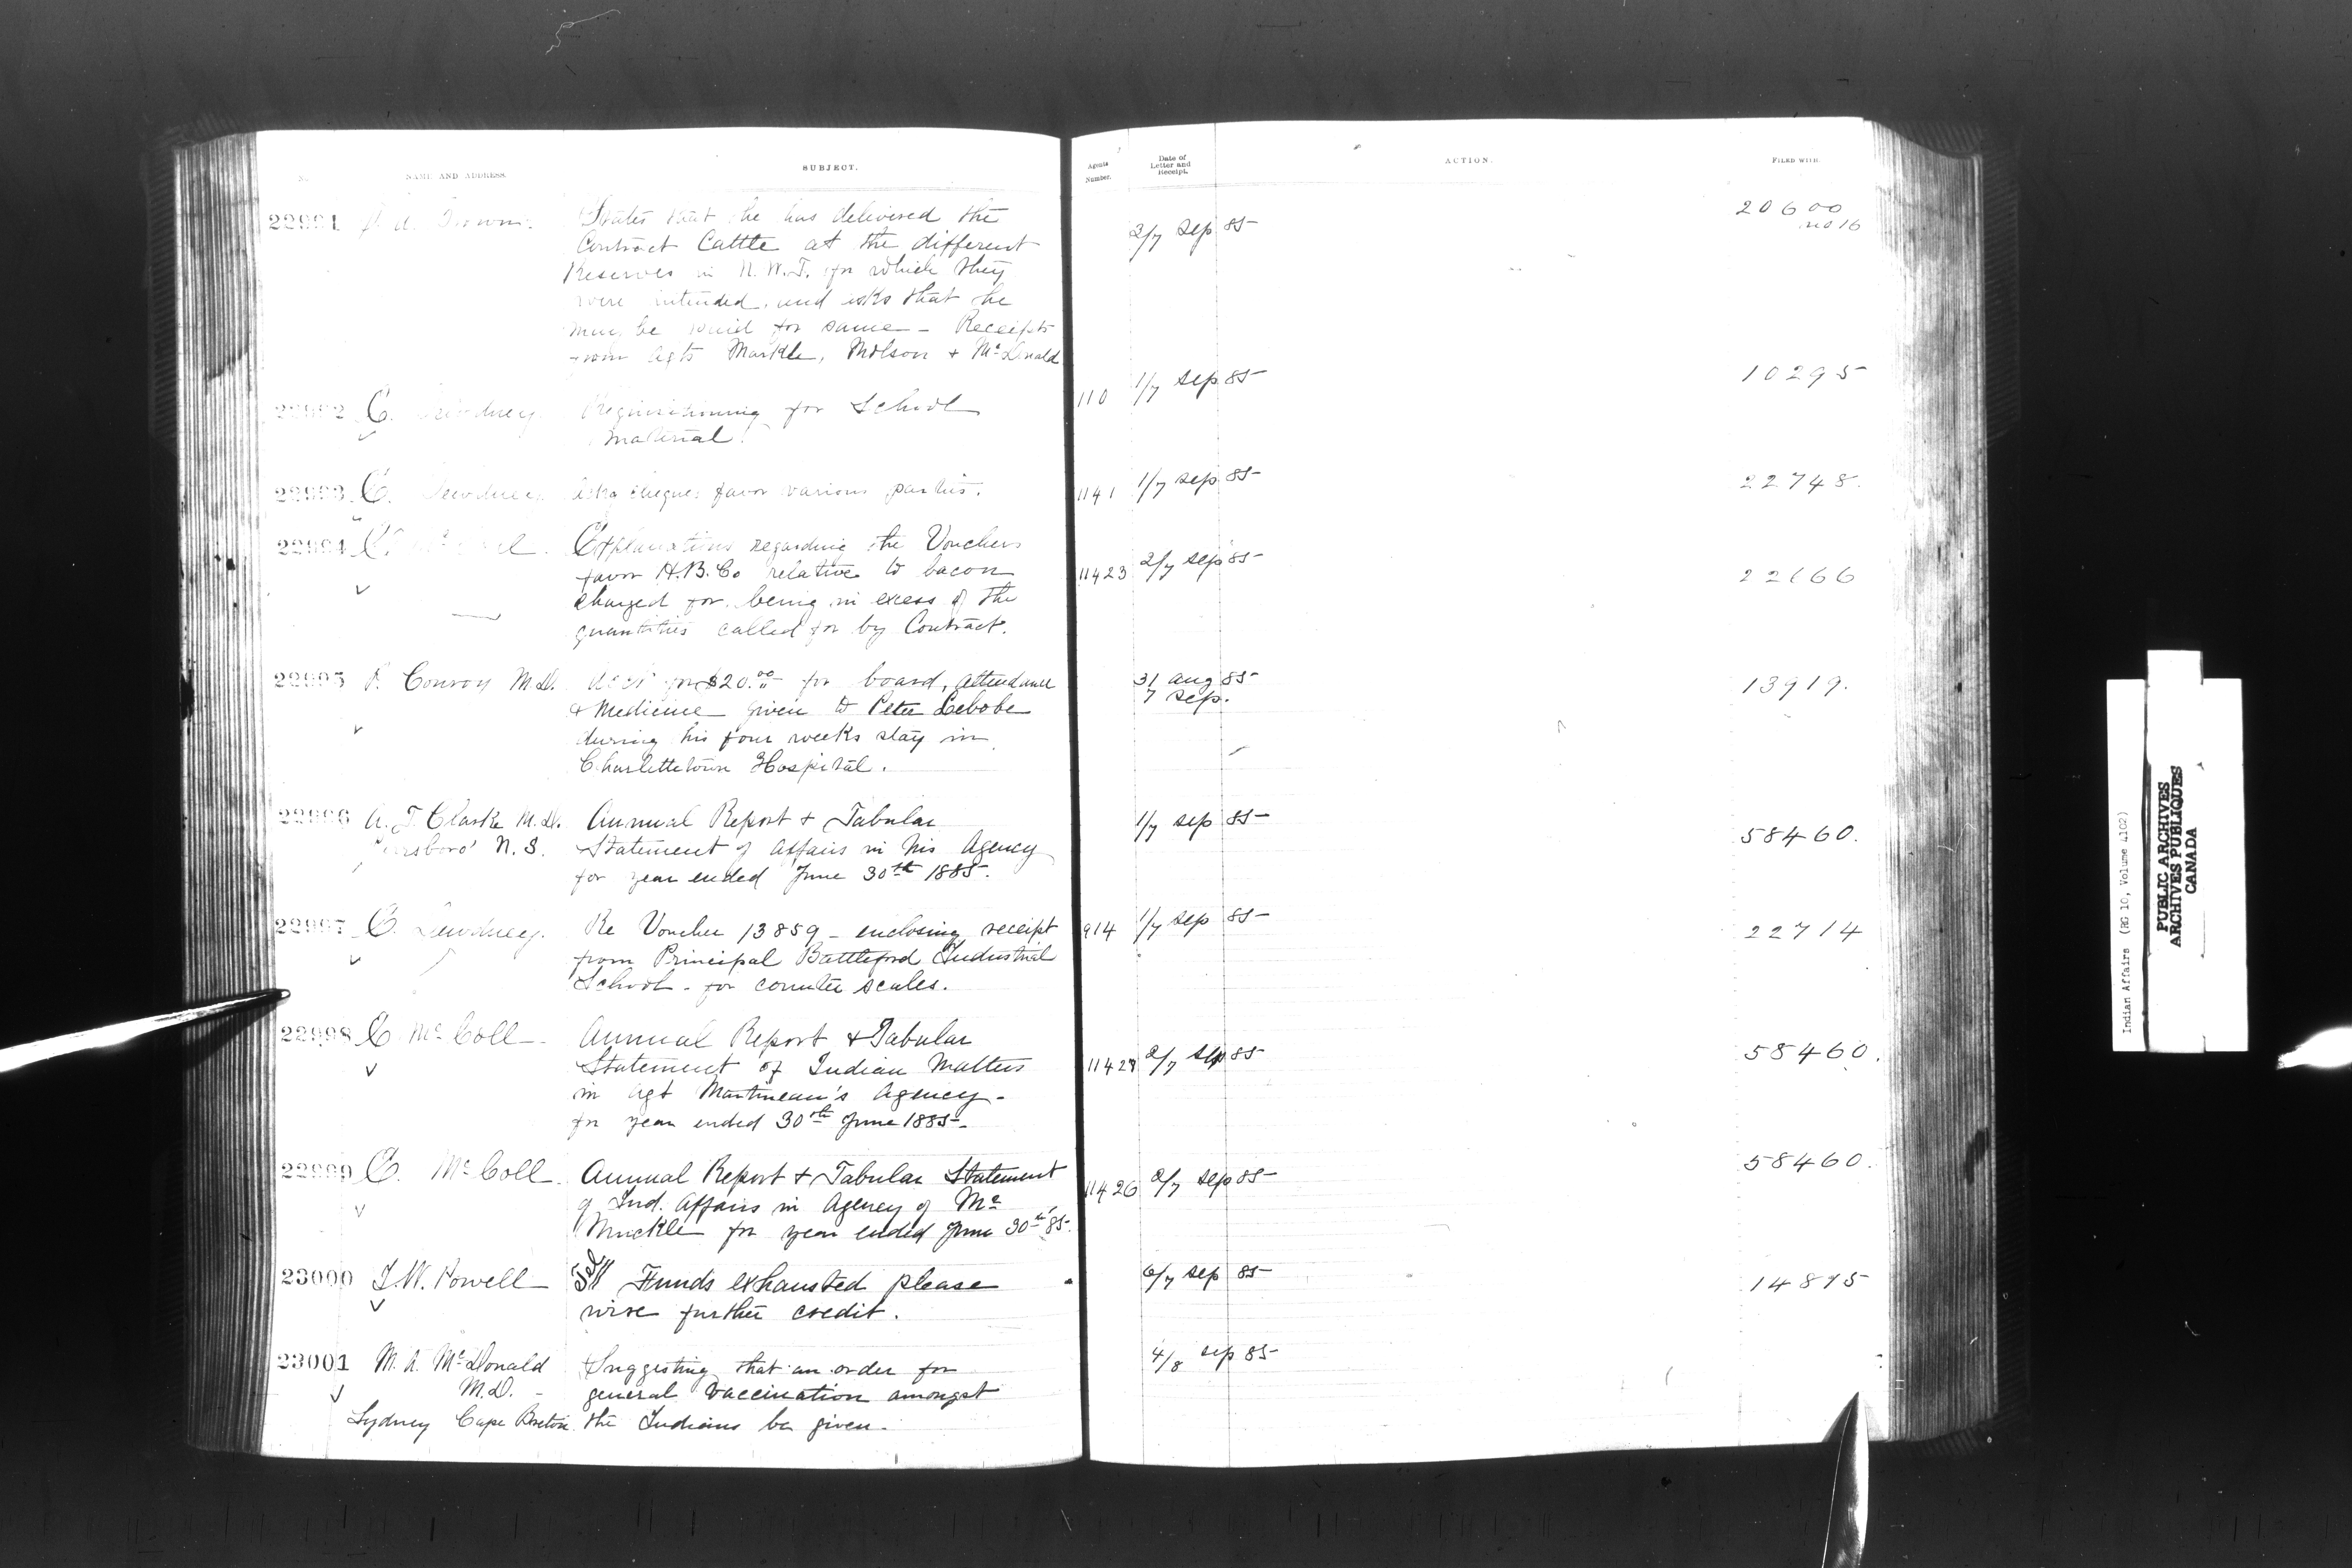 NAME AND ADDRESS
SUBJECT.
22991
States that he has delivered the
Contract Cattle at the different
Reserves in N.W.T. for which they
were intended, and asks that he
may be paid for same - Receipts
from Agts Markle, & McDonald
22992 E. Dewdney.
Requisitioning for School
material.
22993 E. Dewdney.
Asks cheques favor various parties.
22994 E. McColl.
Explanations regarding the Vouchers
favor H.B.Co relative to bacon
charged for being in excess of the
quantities called for by Contract.
22995 P. Conroy M.D.
Acct for $20.00 for board, attendance
& Medicine given to Peter
during his four weeks stay in
Charlottetown Hospital.
22996 A. T. Clarke M.D.
N.S.
Annual Report & Tabular
Statement of Affairs in his Agency
for year ended June 30th 1885.
22997 E. Dewdney.
Re Voucher 13859 - enclosing receipt
from Principal Battleford Industrial
School - for counter scales.
22998 E. McColl -
Annual Report & Tabular
Statement of Indian Matters
in Agt Martineau's Agency -
for year ended 30th June 1885 -
22999 E. McColl.
Annual Report & Tabular Statement
of Ind. Affairs in Agency of Mr
Muckle for year ended June 30th 85-
23000 I.W. Powell
Tel Funds exhausted please
wire further credit.
23001 M. A. McDonald
M.D. -
Sydney Cape Breton
Suggesting that an order for
general vaccination amongst
the Indians be given.
Agents
Number.
Date of
Letter and
Receipt.
ACTION.
FILED WITH.
3/7 Sep 85
20600
no 16
110 1/7 Sep 85
10295
1141 1/7 Sep 85
22748.
11423 2/7 Sep 85
22166
31 Aug 85
7 Sep.
13919.
1/7 Sep 85
58460.
914 1/7 Sep 85
22714
2/7 Sep 85
58460.
11426 2/7 Sep 85
58460.
6/7 Sep 85
14875
4/8 Sep 85
Indian Affairs (RG 10, Volume 4102)
PUBLIC ARCHIVES
ARCHIVES PUBLIQUES
CANADA